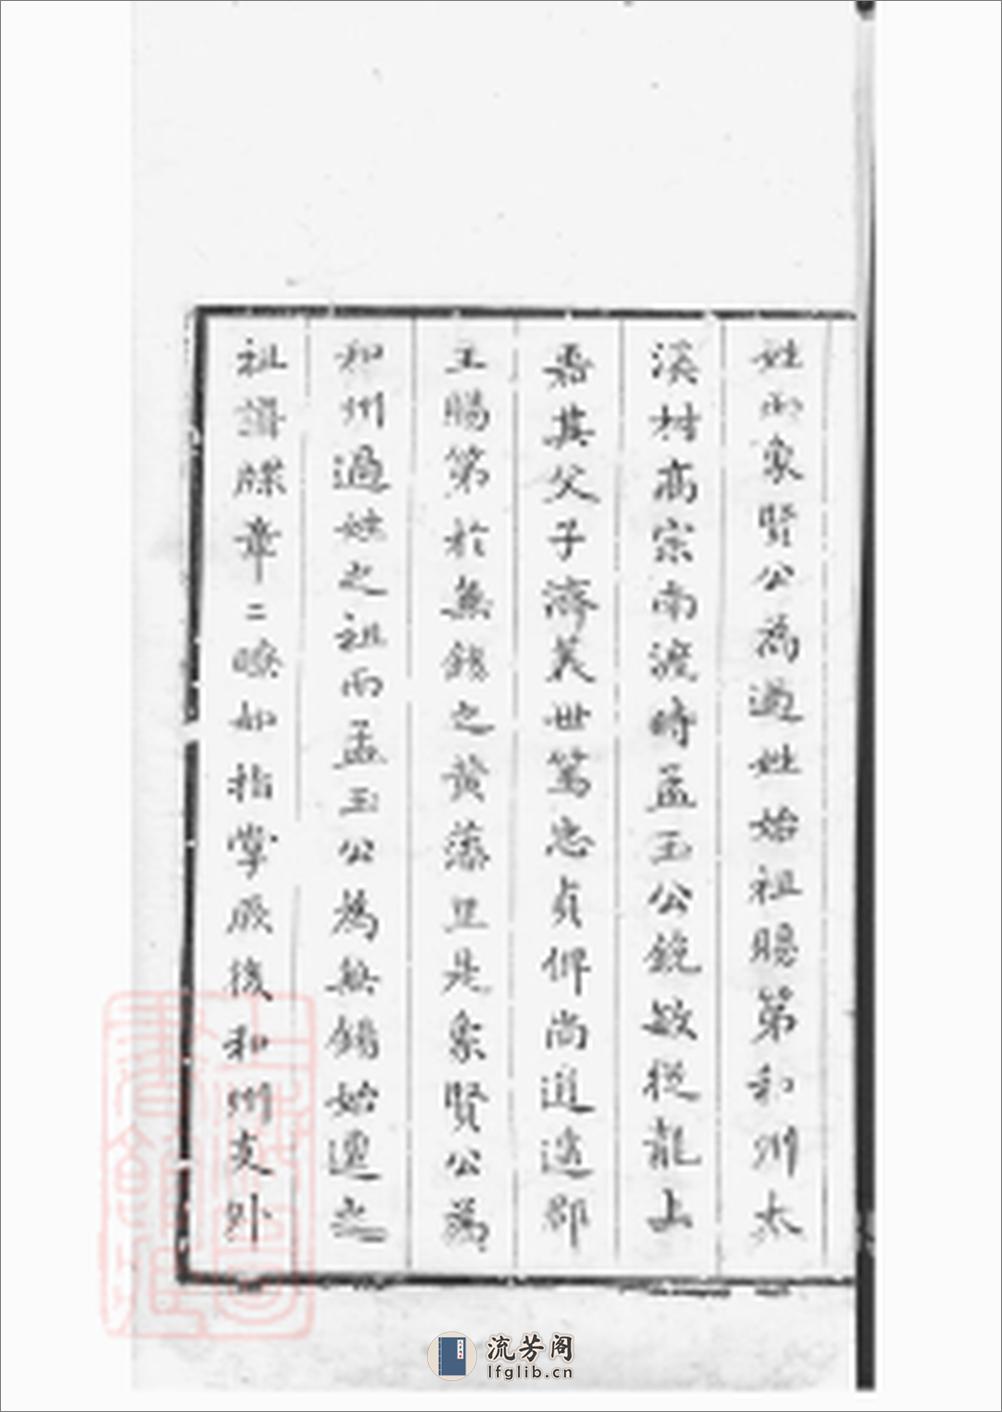 姓而象賢公為過姓始祖賜第和州太
溪村高宗南渡時孟玉公銳敏從龍上
嘉其父子濟美世篤忠貞仰尚道遠郡
王賜第於無錫之黃藻五是象賢公為
和州過姓之祖而孟玉公為無錫始遷之
祖譜牒章二瞭如指掌厥後和州支外
流芳阁
lfglib.cn